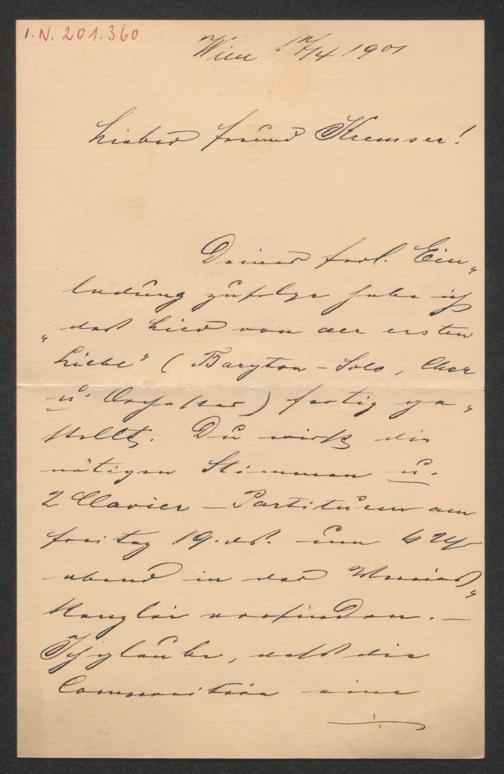 I.N. 201.360
Wien 17/4 1901
Lieber Freund Kremser!
Deiner frdl. Ein„
ladung zufolge habe ich
„das Lied von der ersten
Liebe“ (Baryton-Solo, Chor
u. Orchester) fertig ge„
stellt. Du wirst die
nötigen Stimmen u.
2 Clavier-Partituren am
Freitag 19. ds. um 6 Uhr
abend in der Vereins„
Kanzlei vorfinden. —
Ich glaube, daß die
Composition eine